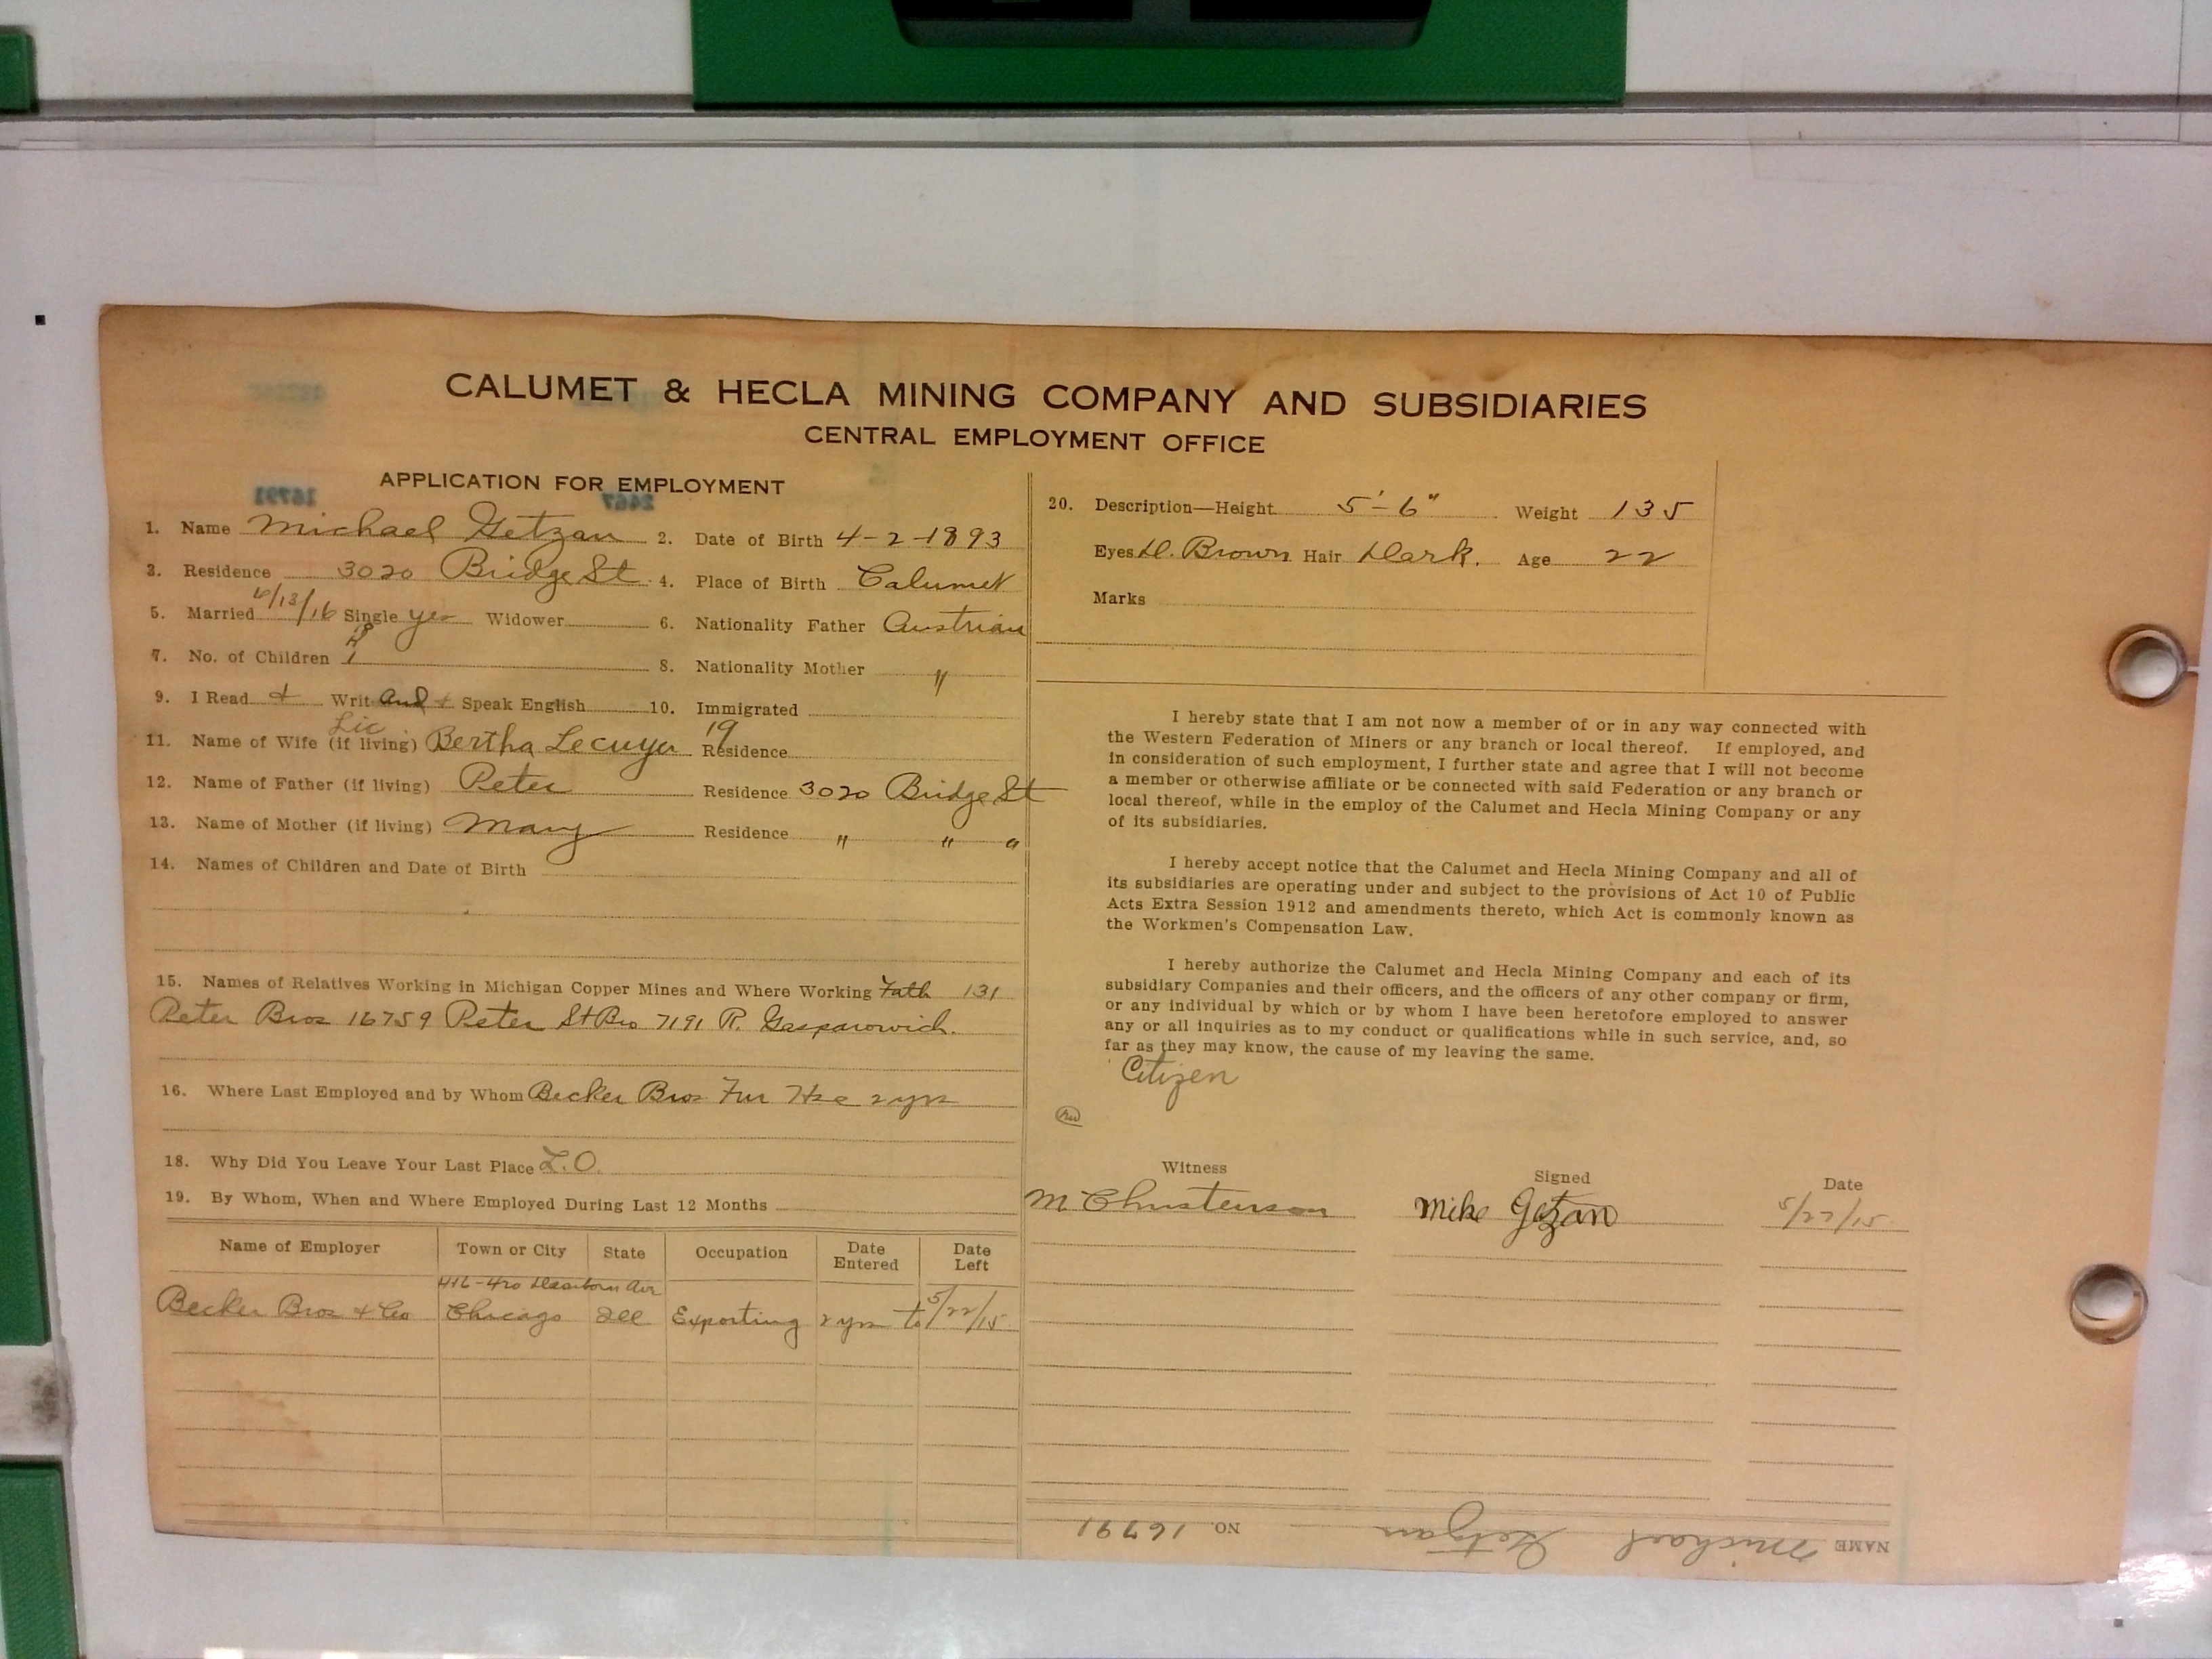 CALUMET & HECLA MINING COMPANY AND SUBSIDIARIES
CENTRAL EMPLOYMENT OFFICE
APPLICATION FOR EMPLOYMENT
16791 2467
1. Name Michael Getzan 2. Date of Birth 4-2-1893
3. Residence 3020 Bridge St. 4. Place of Birth Calumet
5. Married 6/13/16 Single yes Widower 6. Nationality Father Austrian
7. No. of Children 1 8. Nationality Mother "
9. I Read & Writ and + Speak English 10. Immigrated
Lic 19
11. Name of Wife (if living) Bertha Lecuyer Residence
12. Name of Father (if living) Peter Residence 3020 Bridge St
13. Name of Mother (if living) Mary Residence " " "
14. Names of Children and Date of Birth
15. Names of Relatives Working in Michigan Copper Mines and Where Working Fath 131
Peter Bros 16759 Peter St Bro 7191 R. Gasparovich.
16. Where Last Employed and by Whom Becker Bros Fur Hse 2 yrs
18. Why Did You Leave Your Last Place L.O.
19. By Whom, When and Where Employed During Last 12 Months
Name of Employer Town or City State Occupation Date Entered Date Left
416-420 Dearborn Ave
Becker Bros & Co Chicago Ill Exporting 2 yrs to 5/22/15
20. Description—Height 5'-6" Weight 135
Eyes D. Brown Hair Dark. Age 22
Marks
I hereby state that I am not now a member of or in any way connected with
the Western Federation of Miners or any branch or local thereof. If employed, and
in consideration of such employment, I further state and agree that I will not become
a member or otherwise affiliate or be connected with said Federation or any branch or
local thereof, while in the employ of the Calumet and Hecla Mining Company or any
of its subsidiaries.
I hereby accept notice that the Calumet and Hecla Mining Company and all of
its subsidiaries are operating under and subject to the provisions of Act 10 of Public
Acts Extra Session 1912 and amendments thereto, which Act is commonly known as
the Workmen's Compensation Law.
I hereby authorize the Calumet and Hecla Mining Company and each of its
subsidiary Companies and their officers, and the officers of any other company or firm,
or any individual by which or by whom I have been heretofore employed to answer
any or all inquiries as to my conduct or qualifications while in such service, and, so
far as they may know, the cause of my leaving the same.
Citizen
Witness Signed Date
M Christenson Mike Getzan 5/27/15
NAME Michael Getzan NO. 16791